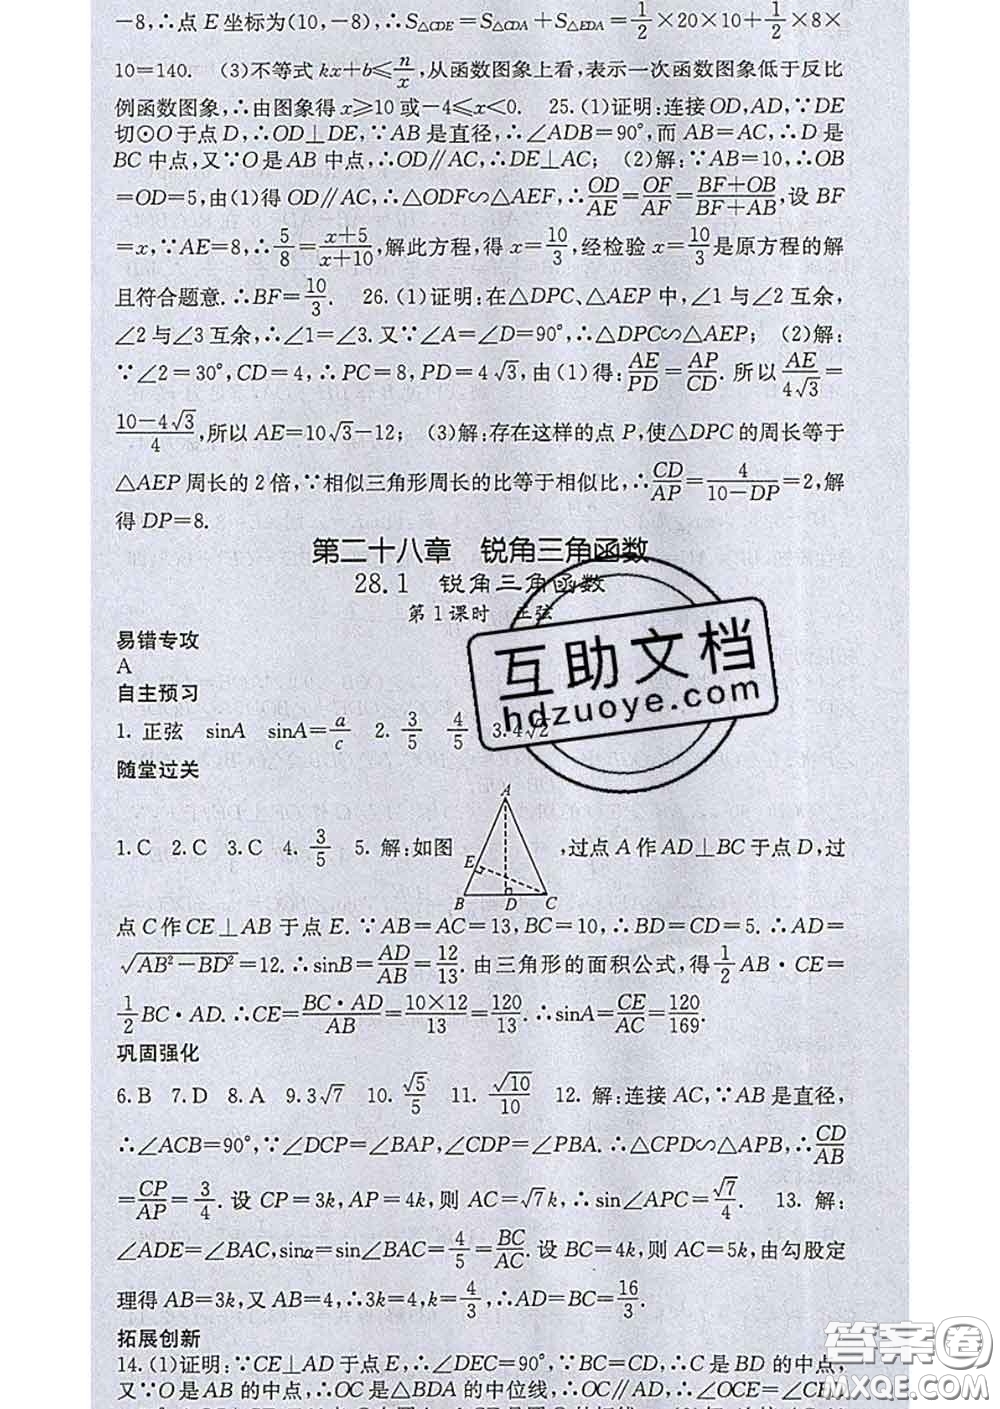 -8,∴点E坐标为(10,-8),∴S△CDE=S△CDA+S△EDA=1/2×20×10+1/2×8×
10=140. (3)不等式kx+b≤n/x,从函数图象上看,表示一次函数图象低于反比
例函数图象,∴由图象得x≥10或-4≤x<0. 25.(1)证明:连接OD,AD,∵DE
切⊙O于点D,∴OD⊥DE,∵AB是直径,∴∠ADB=90°,而AB=AC,∴D是
BC中点,又∵O是AB中点,∴OD∥AC,∴DE⊥AC; (2)解:∵AB=10,∴OB
=OD=5,由(1)得OD∥AC,∴△ODF∽△AEF,∴OD/AE=OF/AF=(BF+OB)/(BF+AB),设BF
=x,∵AE=8,∴5/8=(x+5)/(x+10),解此方程,得x=10/3,经检验x=10/3是原方程的解
且符合题意.∴BF=10/3. 26.(1)证明:在△DPC、△AEP中,∠1与∠2互余,
∠2与∠3互余,∴∠1=∠3.又∵∠A=∠D=90°,∴△DPC∽△AEP; (2)解:
∵∠2=30°,CD=4,∴PC=8,PD=4√3,由(1)得:AE/PD=AP/CD.所以AE/4√3=
(10-4√3)/4,所以AE=10√3-12; (3)解:存在这样的点P,使△DPC的周长等于
△AEP周长的2倍,∵相似三角形周长的比等于相似比,∴CD/AP=4/(10-DP)=2,解
得DP=8.
第二十八章 锐角三角函数
28.1 锐角三角函数
第1课时 正弦
易错专攻
A
自主预习
1.正弦 sinA sinA=a/c 2.3/5 4/5 3.4√2
随堂过关
A
E
B D C
1.C 2.C 3.C 4.3/5 5.解:如图,过点A作AD⊥BC于点D,过
点C作CE⊥AB于点E.∵AB=AC=13,BC=10,∴BD=CD=5.∴AD=
√(AB²-BD²)=12.∴sinB=AD/AB=12/13.由三角形的面积公式,得1/2AB·CE=
1/2BC·AD.∴CE=BC·AD/AB=10×12/13=120/13.∴sinA=CE/AC=120/169.
巩固强化
6.B 7.D 8.A 9.3√7 10.√5/5 11.√10/10 12.解:连接AC,∵AB是直径,
∴∠ACB=90°,∵∠DCP=∠BAP,∠CDP=∠PBA.∴△CPD∽△APB,∴CD/AB
=CP/AP=3/4.设CP=3k,AP=4k,则AC=√7k,∴sin∠APC=√7/4. 13.解:
∠ADE=∠BAC,sinα=sin∠BAC=4/5=BC/AC.设BC=4k,则AC=5k,由勾股定
理得AB=3k,又AB=4,∴3k=4,k=4/3,∴AD=BC=16/3.
拓展创新
14.(1)证明:∵CE⊥AD于点E,∴∠DEC=90°,∵BC=CD,∴C是BD的中点,
又∵O是AB的中点,∴OC是△BDA的中位线,∴OC∥AD,∴∠OCE=∠CED
互助文档
hdzuoye.com
答案圈
MXQE.COM